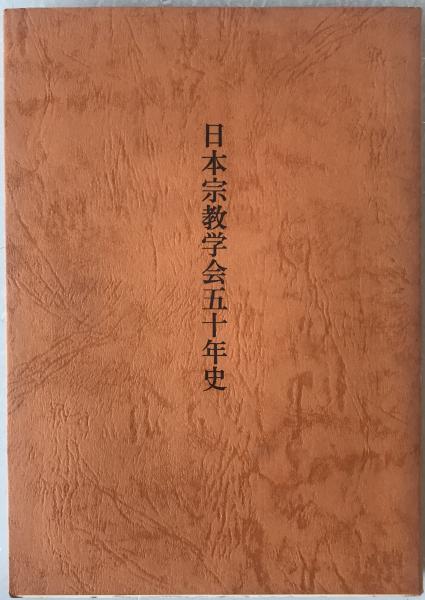 日本宗教学会五十年史